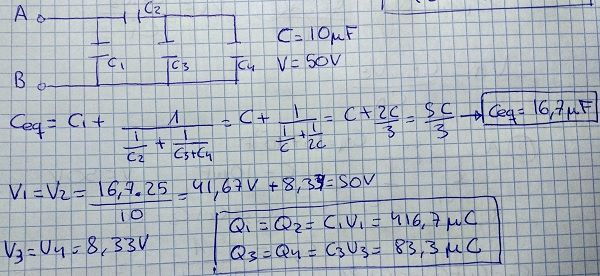 A C2
C1 C3 C4 C = 10μF
B V = 50V
Ceq = C1 + 1 / (1/C2 + 1/(C3+C4)) = C + 1 / (1/C + 1/2C) = C + 2C/3 = 5C/3 → Ceq = 16,7μF
V1 = V2 = 16,7·25 / 10 = 41,67V + 8,33 = 50V
V3 = V4 = 8,33V
Q1 = Q2 = C1V1 = 416,7 μC
Q3 = Q4 = C3V3 = 83,3 μC